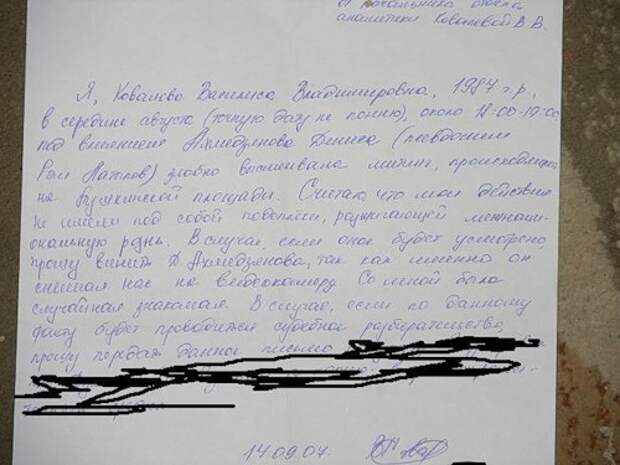 от начальника отдела
аналитики Ковалевой В.В.
Я, Ковалева Василиса Владимировна, 1987 г.р.,
в середине августа (точную дату не помню), около 18:00-19:00
под влиянием Ахмедзянова Дениса (псевдоним
злобно высмеивала митинг, происходящий
на Пушкинской площади. Считаю, что мои действия
не имели под собой подоплеки, разжигающей межнаци-
ональную рознь. В случае, если оное будет усмотрено,
прошу винить Д. Ахмедзянова, так как именно он
снимал нас на видеокамеру. Со мной была
случайная знакомая. В случае, если по данному
факту будет проводится судебное разбирательство,
прошу передать данное письмо
14.09.07.